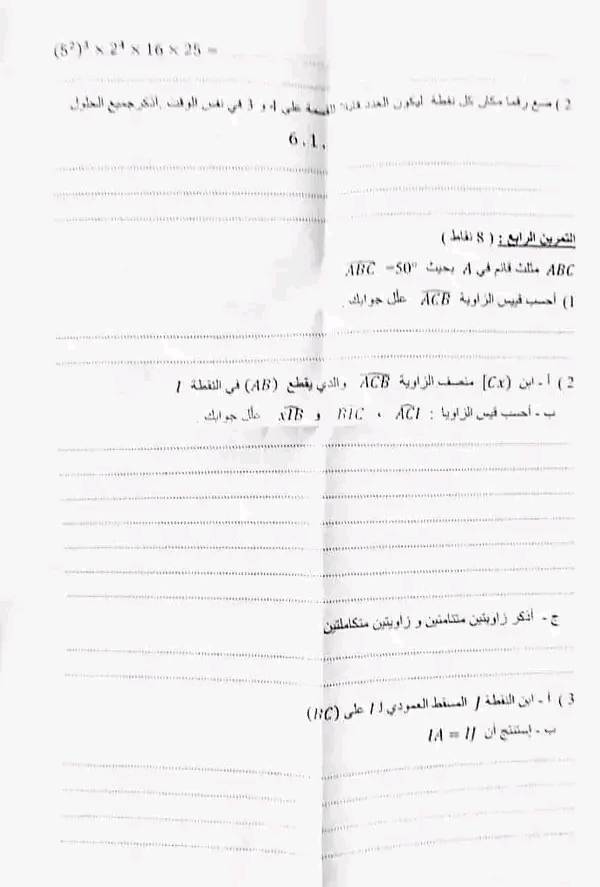 (5²)³ × 2⁴ × 16 × 25 =
2 ) ضع رقما مكان كل نقطة ليكون العدد قابلا للقسمة على 4 و 3 في نفس الوقت . أذكر جميع الحلول
6 . 1 .
التمرين الرابع : ( 8 نقاط )
ABC مثلث قائم في A بحيث ABC =50°
1) أحسب قيس الزاوية ACB علل جوابك .
2 ) أ - ابن [Cx) منصف الزاوية ACB والذي يقطع (AB) في النقطة I
ب - أحسب قيس الزوايا : ACI ، BIC و xIB علل جوابك .
ج - أذكر زاويتين متتامتين و زاويتين متكاملتين
3 ) أ - ابن النقطة J المسقط العمودي لـ I على (BC)
ب - إستنتج أن IA = IJ